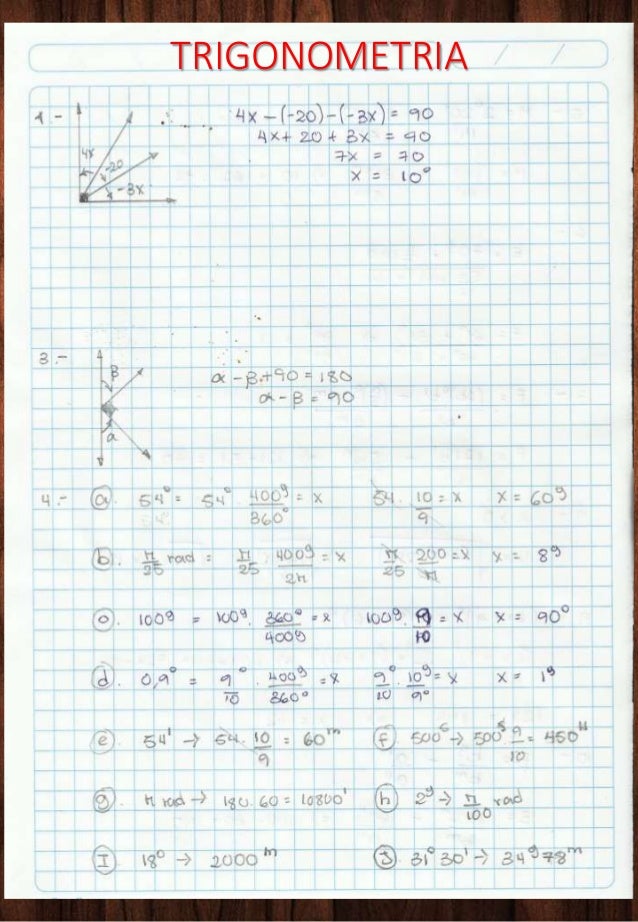 TRIGONOMETRIA
1 -
4x - (-20) - (-3x) = 90
4x + 20 + 3x = 90
7x = 70
x = 10°
4x
-20
-3x
3 -
β
α
α - β + 90 = 180
α - β = 90
4.- (a). 54° = 54° . 400g/360° = x    54 . 10/9 = x    x = 60g
(b). π/25 rad = π/25 . 400g/2π = x    π/25 . 200/π = x    x = 8g
(c). 100g = 100g . 360°/400g = x    100g . 9/10 = x    x = 90°
(d). 0,9° = 9°/10 . 400g/360° = x    9°/10 . 10g/9° = x    x = 1g
(e). 54' → 54 . 10/9 = 60m    (f). 500s → 500s 9/10 = 450"
(g). π rad → 180.60 = 10800'    (h) 2g → π/100 rad
(I) 18° → 2000m    (J). 31° 30' → 34g 78m